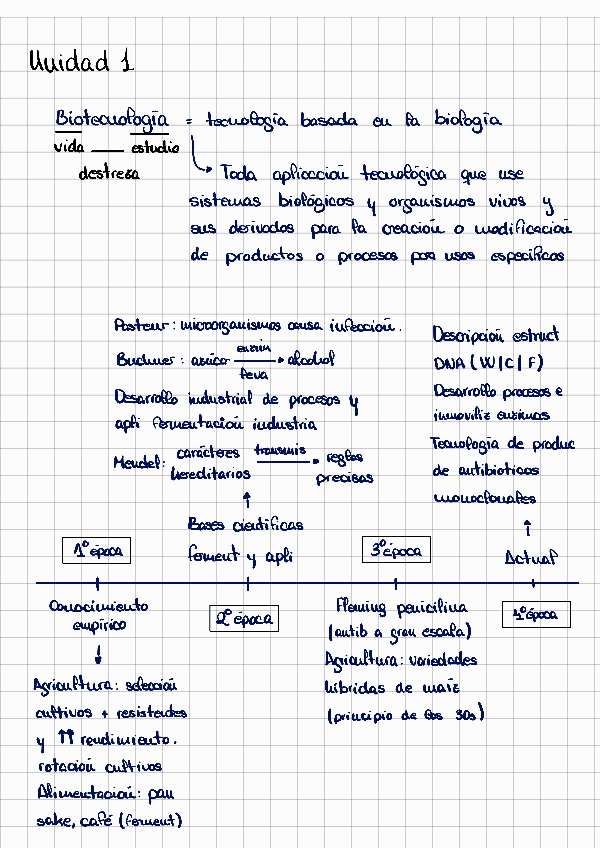 Unidad 1
Biotecnología = tecnología basada en la biología
vida — estudio
destreza
Toda aplicación tecnológica que use
sistemas biológicos y organismos vivos y
sus derivados para la creación o modificación
de productos o procesos por usos específicos
Pasteur: microorganismos causa infección.
Buchner: azúcar enzim → alcohol
leva
Desarrollo industrial de procesos y
apli fermentación industria
Mendel: carácteres transmis → reglas
hereditarios precisas
Bases científicas
ferment y apli
Descripción estruct
DNA (W/C/F)
Desarrollo procesos e
inmoviliz enzimas
Tecnología de produc
de antibioticos
monoclonales
Actual
1º época
2º época
3º época
4º época
Conocimiento
empírico
Agricultura: selección
cultivos + resistentes
y ↑↑ rendimiento.
rotación cultivos
Alimentación: pan
sake, café (ferment)
Fleming penicilina
(antib a gran escala)
Agricultura: variedades
híbridas de maíz
(principio de los 30s)